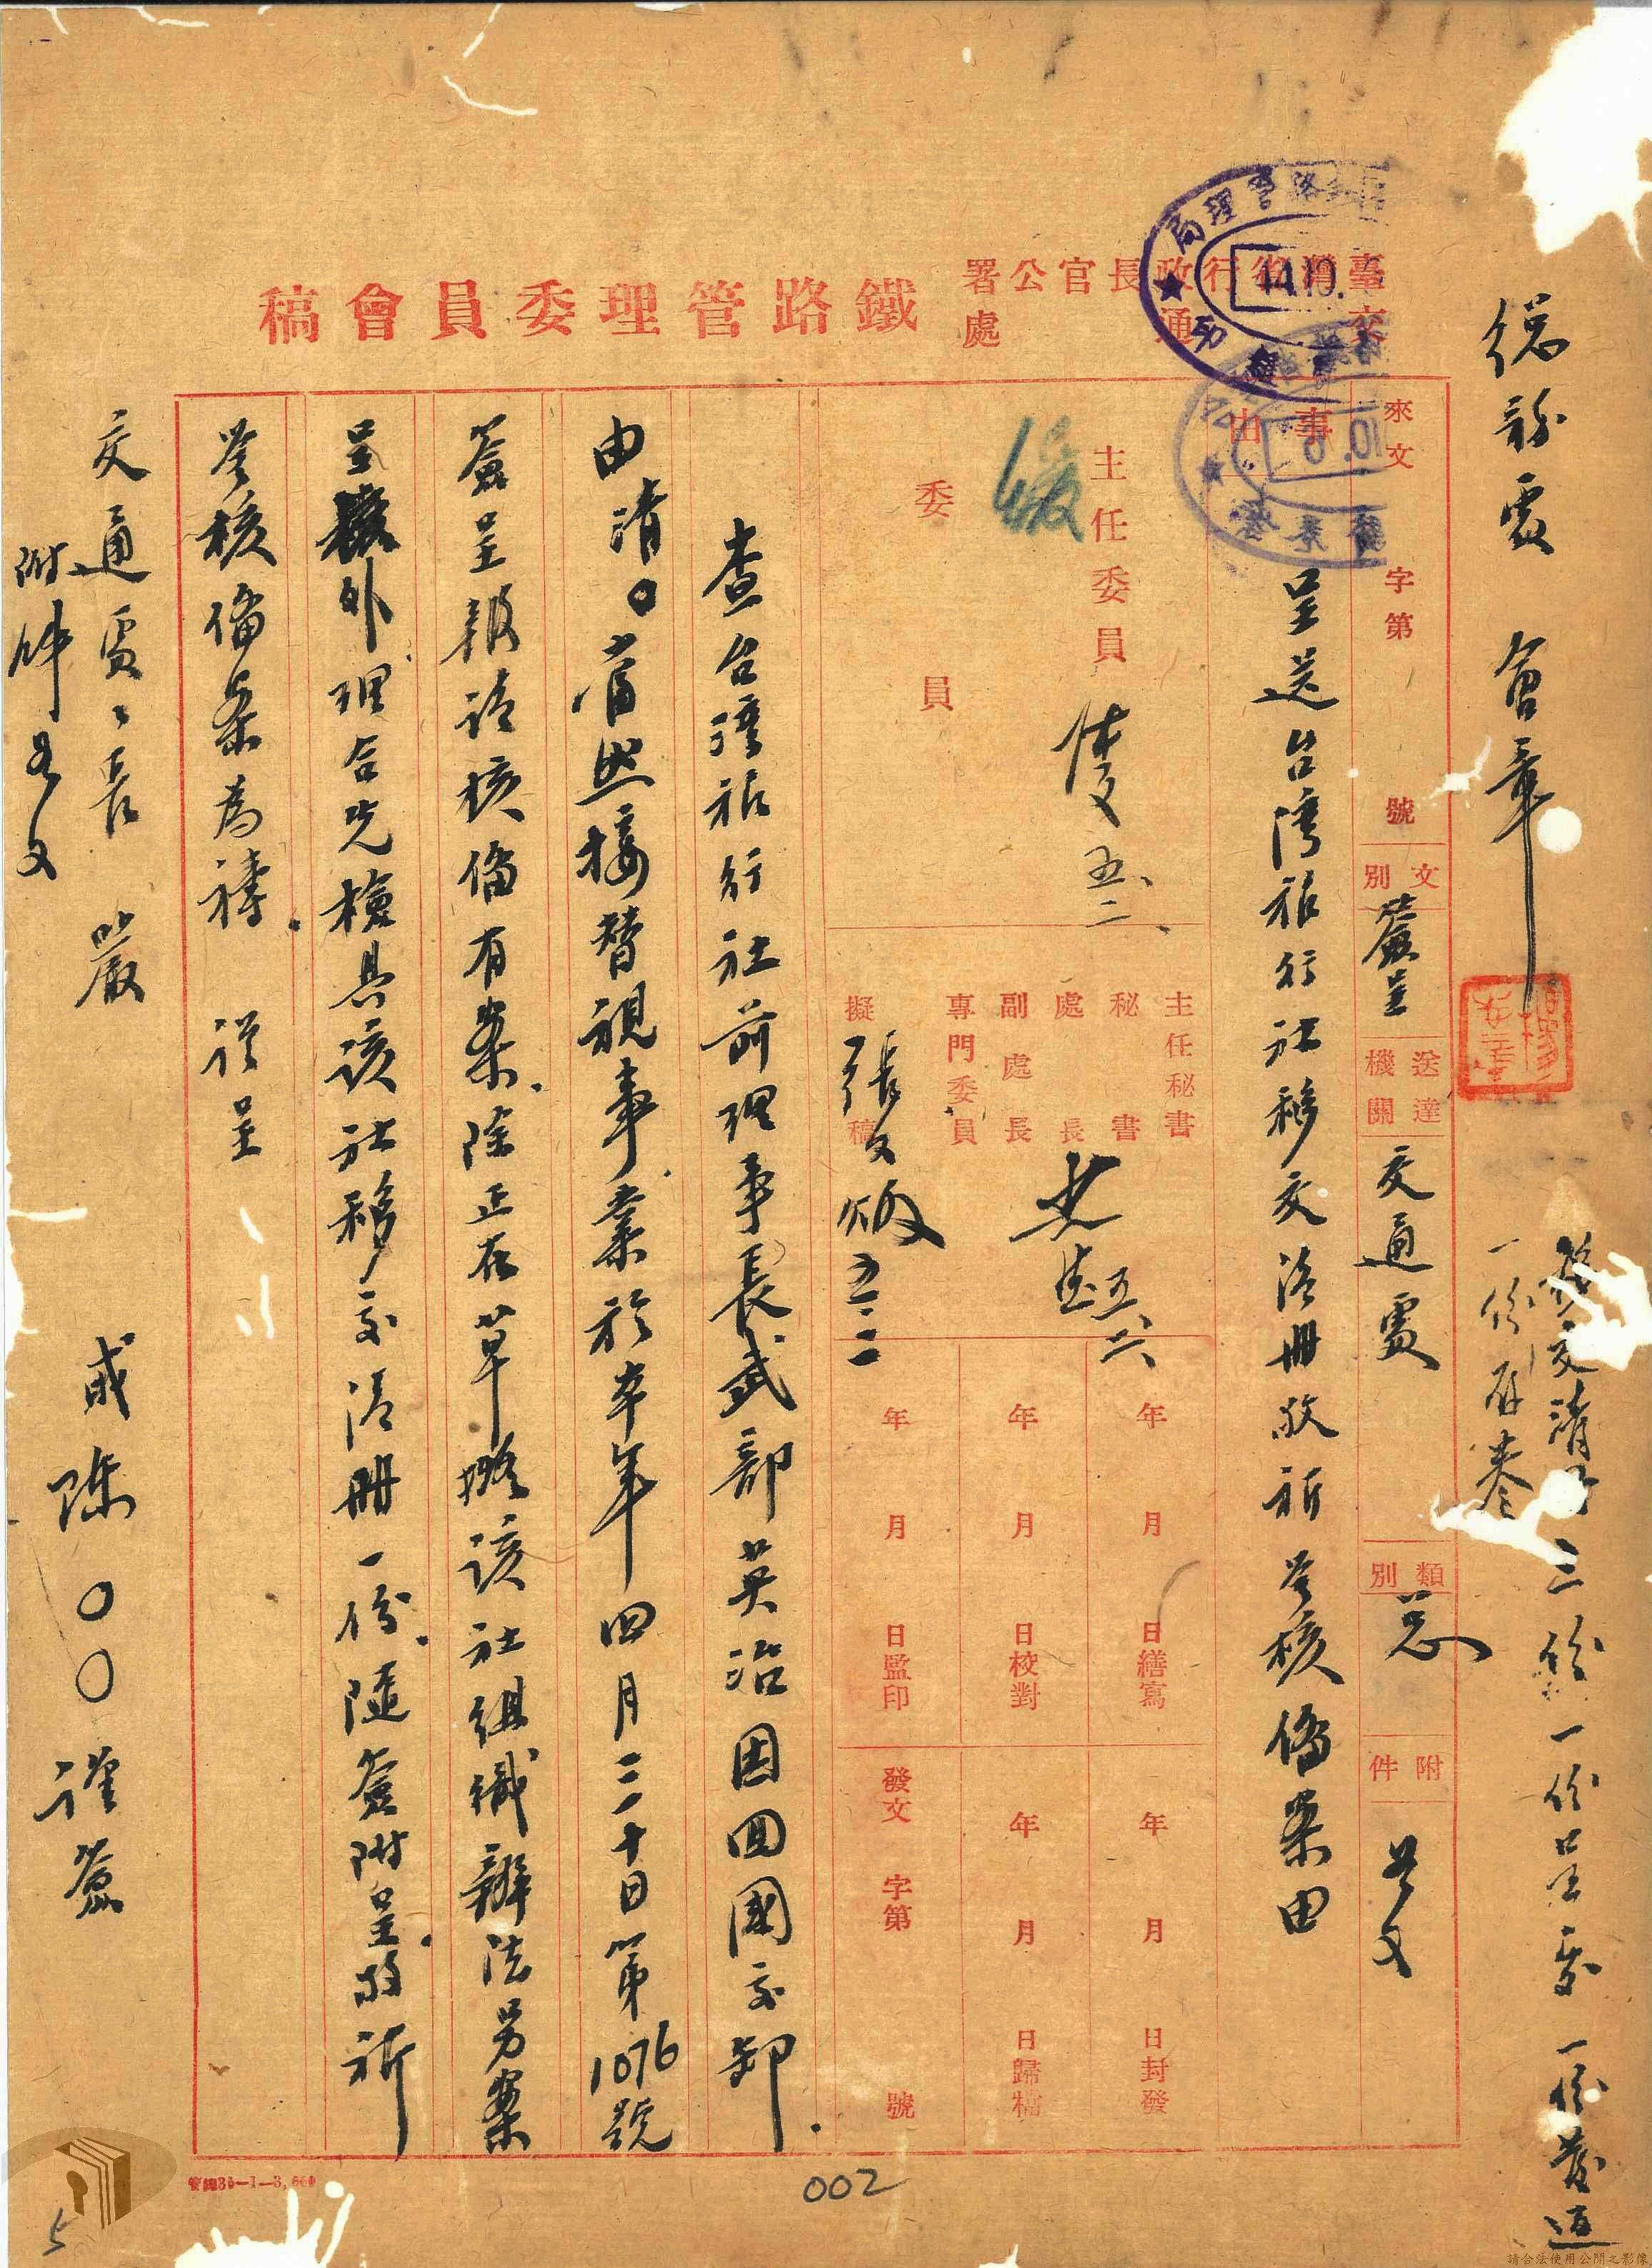 總務處 會章
移交清冊三份 一份呈處 一份發還
一份存卷
臺灣省行政長官公署
交通處
鐵路管理委員會稿
來文 字第 號
文別 簽呈
送達機關 交通處
類別 总
附件 如文
事由 呈送台灣旅行社移交清冊敬祈 鑒核備案由
主任委員
委員
主任秘書
秘書
處長
副處長
專門委員
擬稿
五、二
五、六
年 月 日繕寫
年 月 日校對
年 月 日監印
年 月 日封發
年 月 日歸檔
發文 字第 號
查台灣旅行社前理事長武部英治因回國交卸.
由清〇當然接替視事.業於本年四月二十日第1076號
簽呈報請核備有案.除正在草擬該社組織辦法另案
呈核外理合先檢具該社移交清冊一份.隨簽附呈.敬祈
鑒核備案為禱. 謹呈
交通處處長 嚴
附件如文
戚 陳〇〇 謹簽
002
5
請合法使用公開之影像